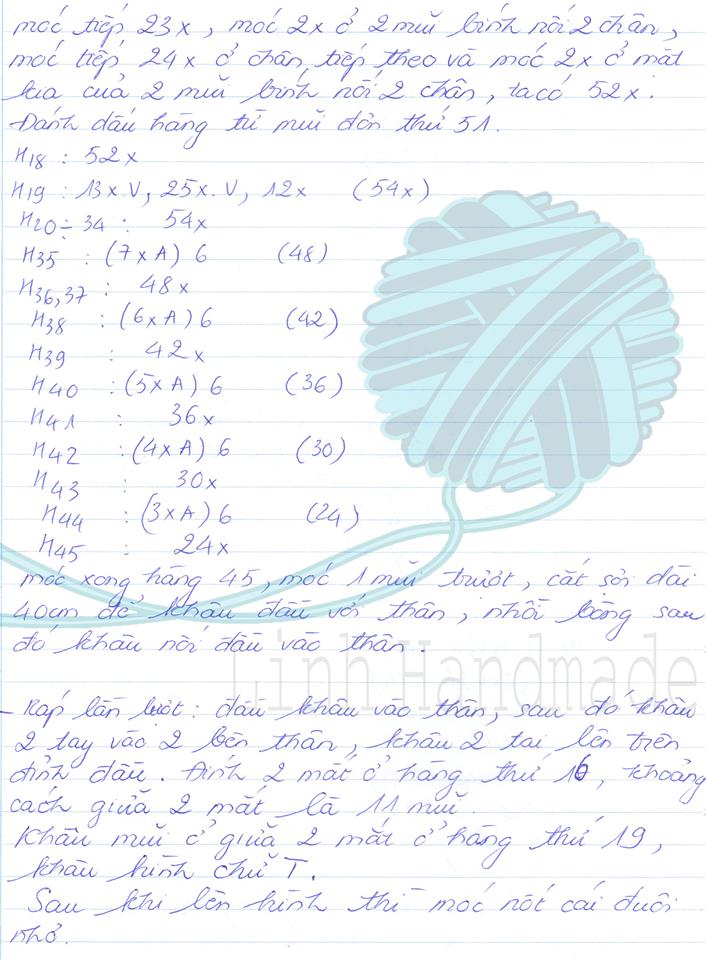 móc tiếp 23x, móc 2x ở 2 mũi bính nối 2 chân,
móc tiếp 24x ở chân tiếp theo và móc 2x ở mặt
kia của 2 mũi bính nối 2 chân, ta có 52x.
- Đánh dấu hàng từ mũi đơn thứ 51.
H18 : 52x
H19 : 13x.V, 25x.V, 12x (54x)
H20÷34 : 54x
H35 : (7x A) 6 (48)
H36,37 : 48x
H38 : (6x A) 6 (42)
H39 : 42x
H40 : (5x A) 6 (36)
H41 : 36x
H42 : (4x A) 6 (30)
H43 : 30x
H44 : (3x A) 6 (24)
H45 : 24x
móc xong hàng 45, móc 1 mũi trượt, cắt sợi dài
40cm để khâu đầu với thân, nhồi bông sau
đó khâu nối đầu vào thân.
Linh Handmade
- Ráp lần lượt : đầu khâu vào thân, sau đó khâu
2 tay vào 2 bên thân, khâu 2 tai lên trên
đỉnh đầu. Đính 2 mắt ở hàng thứ 16, khoảng
cách giữa 2 mắt là 11 mũi.
Khâu mũi ở giữa 2 mắt ở hàng thứ 19,
khâu hình chữ T.
Sau khi lên hình thì móc nốt cái đuôi
nhỏ.